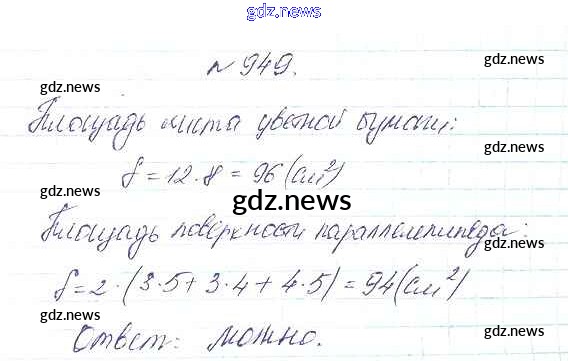 gdz.news
№ 949.
gdz.news
gdz.news
gdz.news
Площадь листа цветной бумаги:
gdz.news
S = 12 · 8 = 96 (см²)
gdz.news
gdz.news
Площадь поверхности параллелепипеда:
gdz.news
S = 2 · (3·5 + 3·4 + 4·5) = 94 (см²)
gdz.news
Ответ: можно.
gdz.news
gdz.news